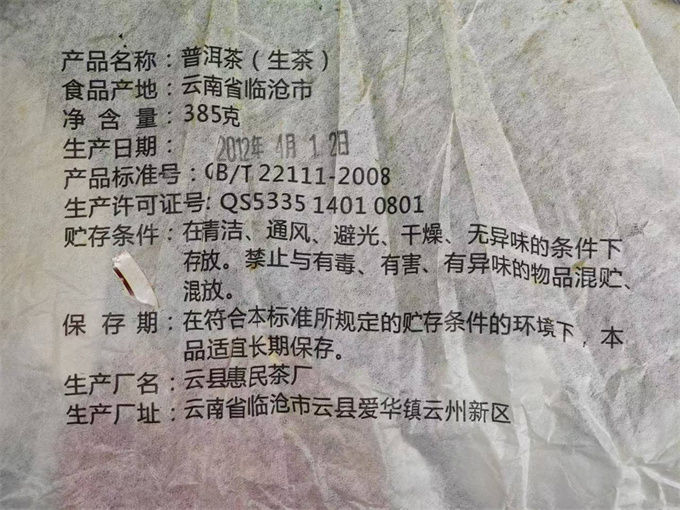 产品名称：普洱茶（生茶）
食品产地：云南省临沧市
净 含 量：385克
生产日期：2012年 4月 1 2日
产品标准号：GB/T 22111-2008
生产许可证号：QS5335 1401 0801
贮存条件：在清洁、通风、避光、干燥、无异味的条件下
存放。禁止与有毒、有害、有异味的物品混贮、
混放。
保 存 期：在符合本标准所规定的贮存条件的环境下，本
品适宜长期保存。
生产厂名：云县惠民茶厂
生产厂址：云南省临沧市云县爱华镇云州新区